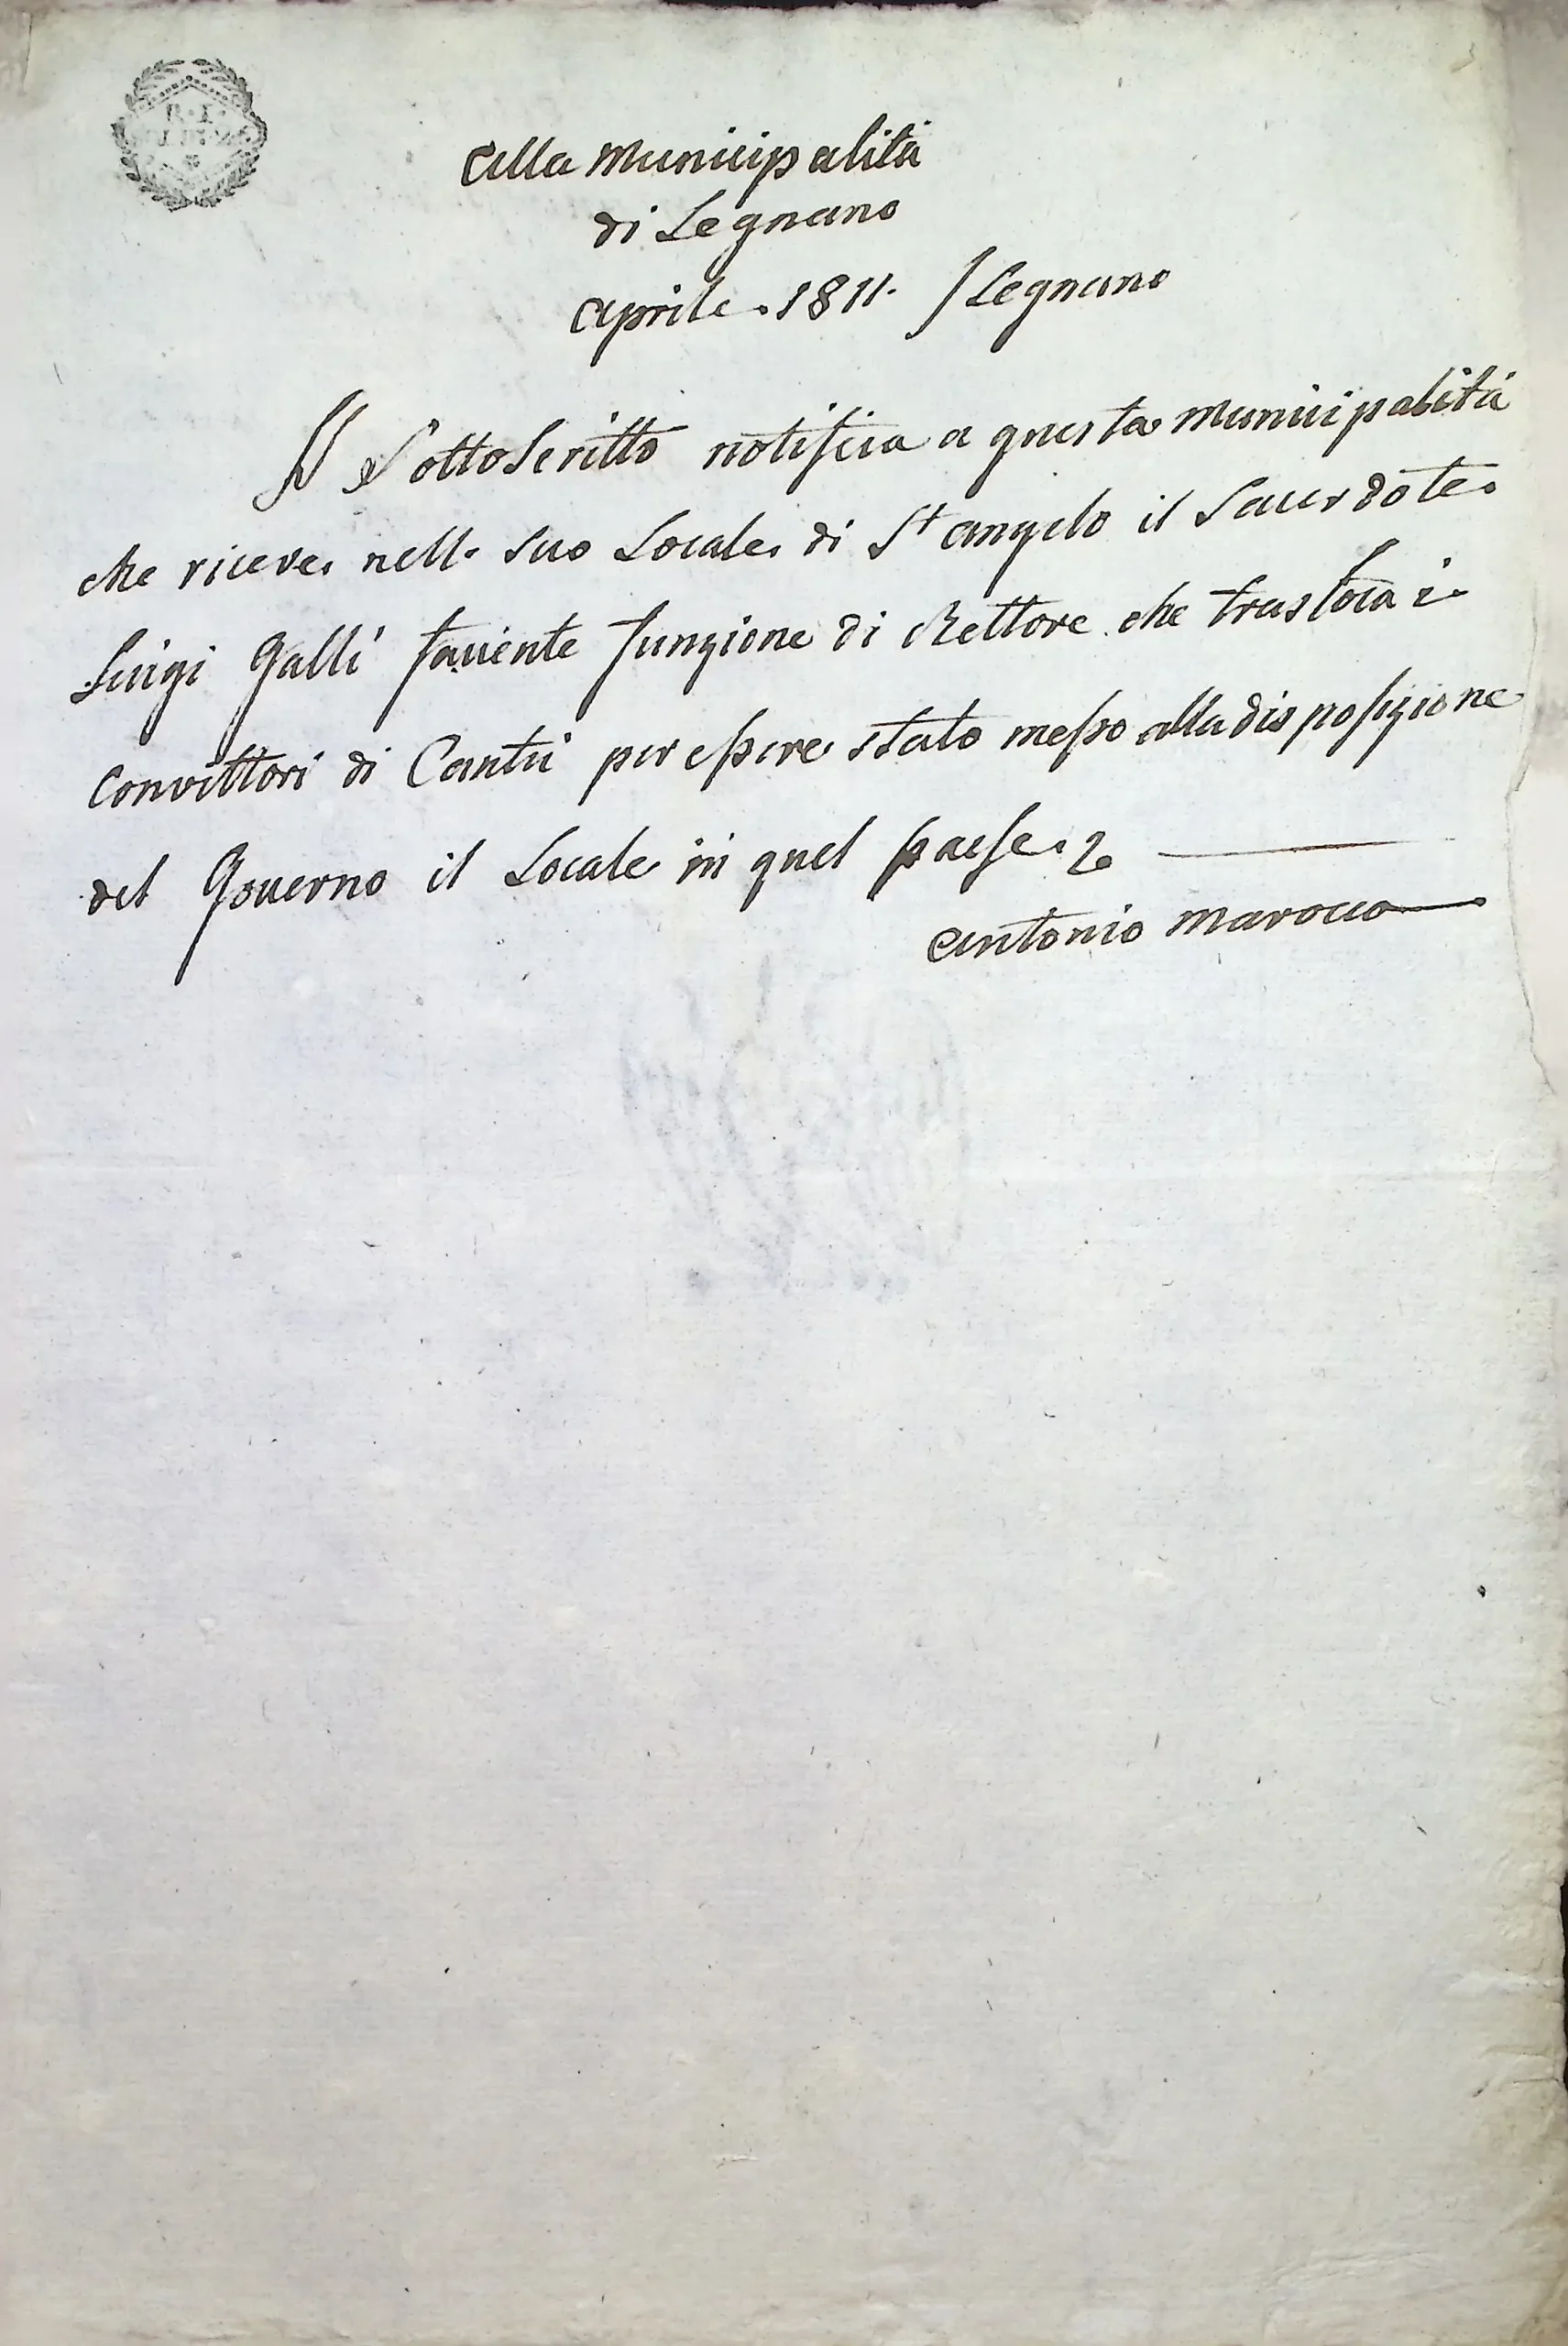 Alla Municipalità
di Legnano
Aprile. 1811. / Legnano
Il Sottoscritto notificia a questa Municipalità
che riceve nell suo Locale di St angelo il Sacerdote
Luigi Galli faciente funzione di Rettore che trasloca i
Convittori di Cantù per essere stato messo alla disposizione
del Governo il Locale in quel paese.
Antonio Marocco